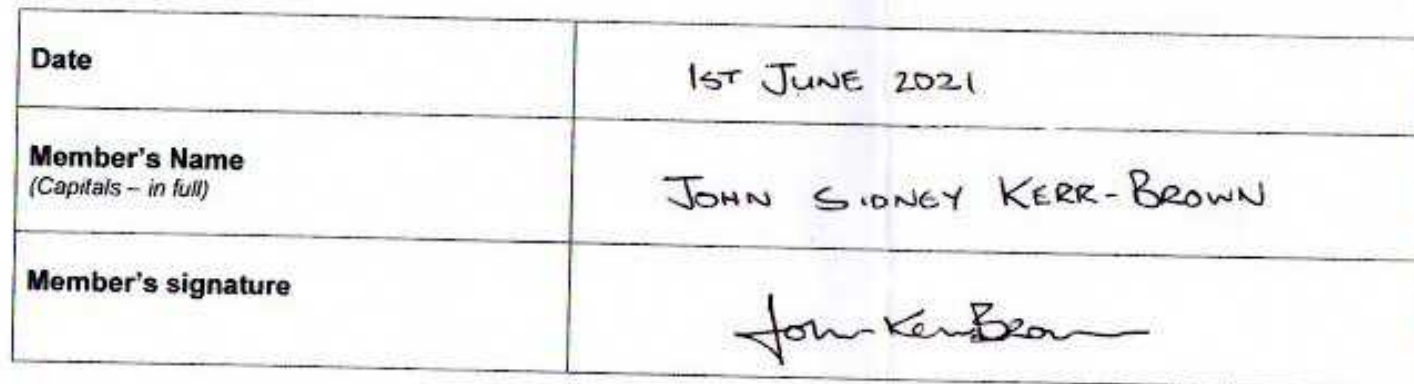 Date
1ST JUNE 2021
Member's Name
(Capitals – in full)
JOHN SIDNEY KERR-BROWN
Member's signature
John Kerr Brown